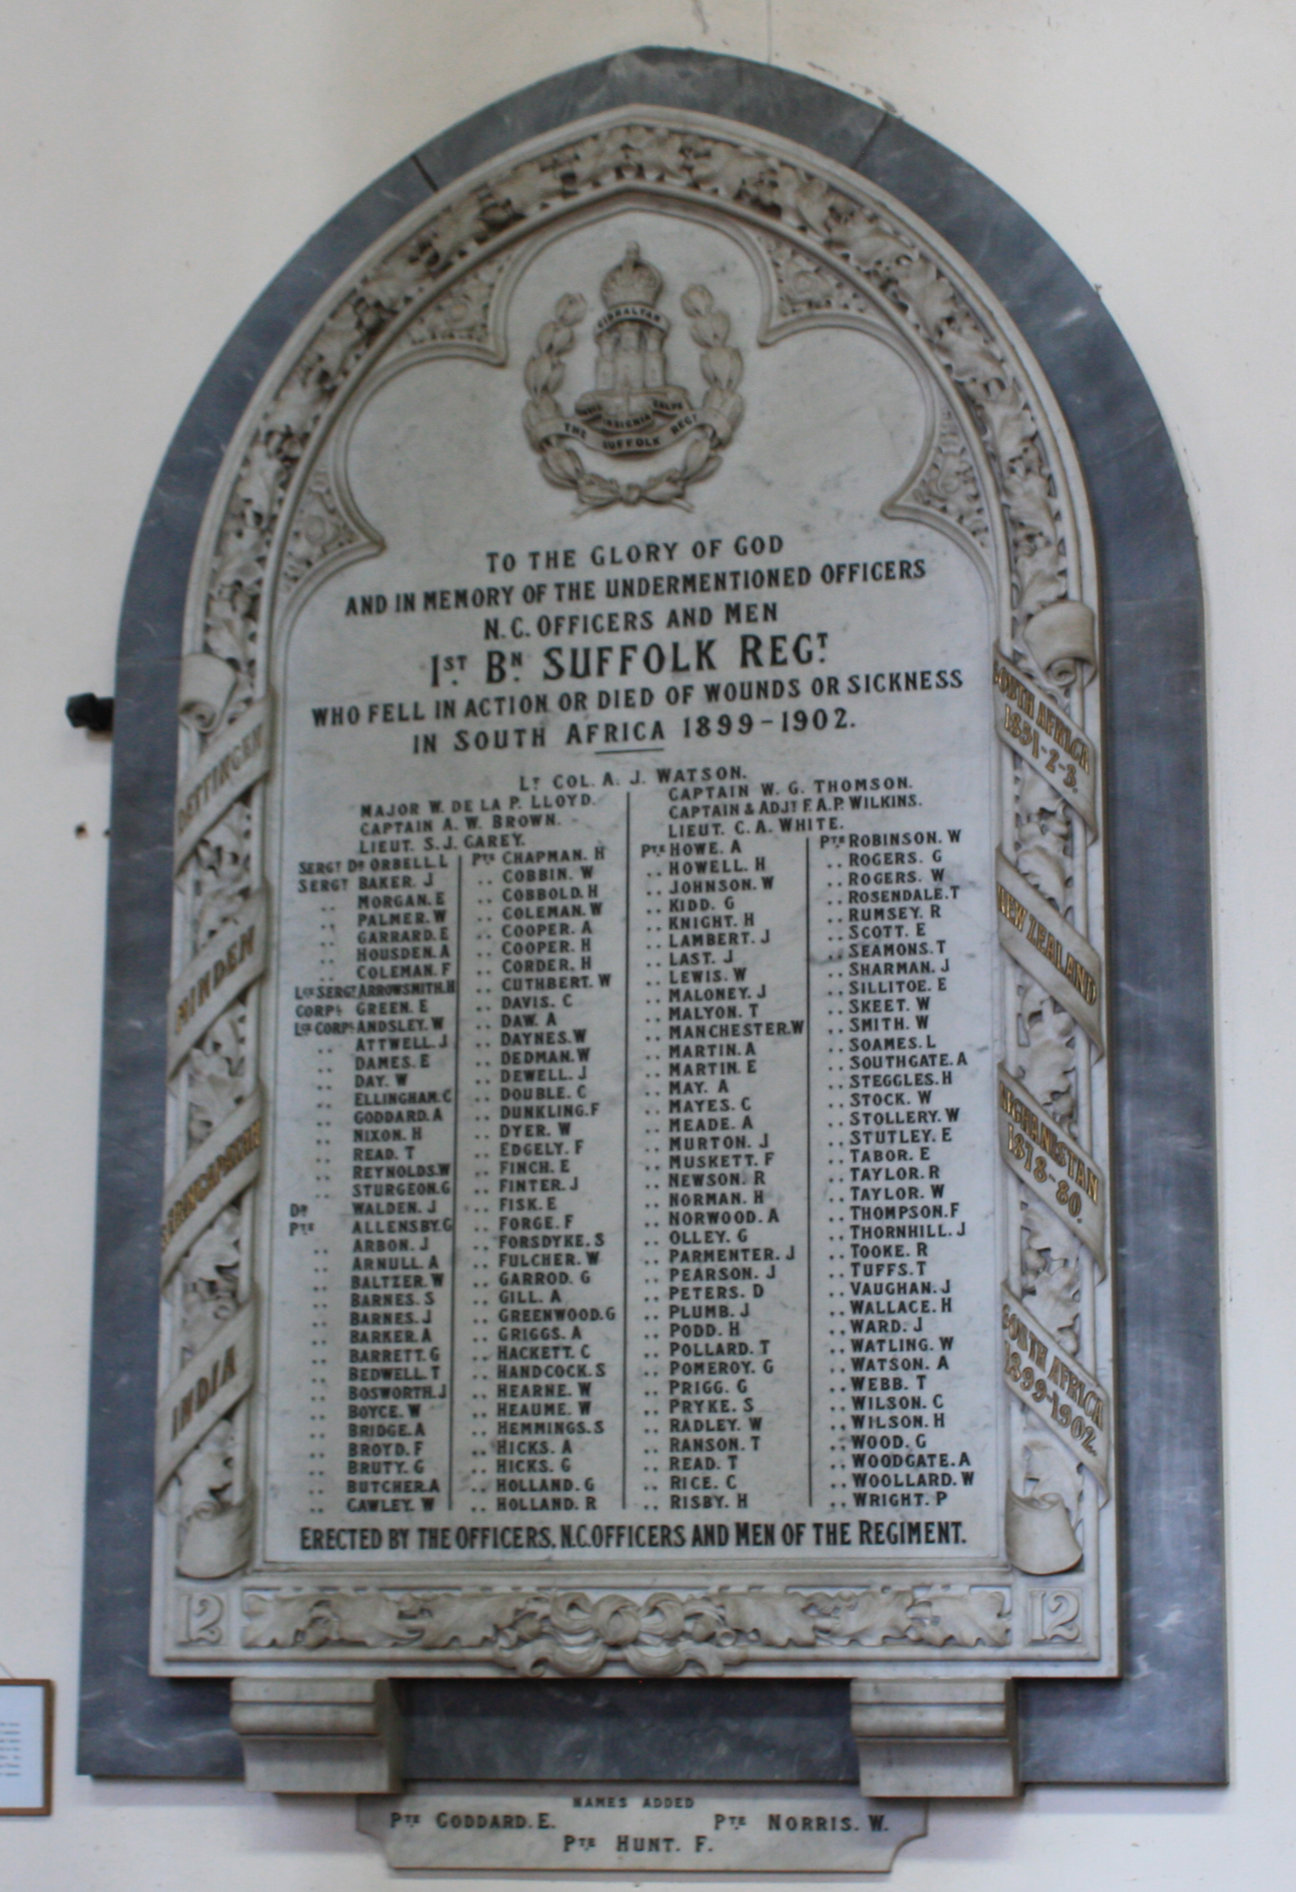 GIBRALTAR
MONTIS INSIGNIA CALPE
THE SUFFOLK REGT
TO THE GLORY OF GOD
AND IN MEMORY OF THE UNDERMENTIONED OFFICERS
N.C. OFFICERS AND MEN
1ST BN SUFFOLK REGT.
WHO FELL IN ACTION OR DIED OF WOUNDS OR SICKNESS
IN SOUTH AFRICA 1899-1902.
LT COL. A. J. WATSON.
MAJOR W. DE LA P. LLOYD.
CAPTAIN A. W. BROWN.
LIEUT. S. J. CAREY.
CAPTAIN W. G. THOMSON.
CAPTAIN & ADJT F. A. P. WILKINS.
LIEUT. C. A. WHITE.
SERGT DR ORBELL. L
SERGT BAKER. J
.. MORGAN. E
.. PALMER. W
.. GARRARD. E
.. HOUSDEN. A
.. COLEMAN. F
LCE SERGT ARROWSMITH. H
CORPL GREEN. E
LCE CORPL ANDSLEY. W
.. ATTWELL. J
.. DAMES. E
.. DAY. W
.. ELLINGHAM. C
.. GODDARD. A
.. NIXON. H
.. READ. T
.. REYNOLDS. W
.. STURGEON. G
DR WALDEN. J
PTE ALLENSBY. G
.. ARBON. J
.. ARNULL. A
.. BALTZER. W
.. BARNES. S
.. BARNES. J
.. BARKER. A
.. BARRETT. G
.. BEDWELL. T
.. BOSWORTH. J
.. BOYCE. W
.. BRIDGE. A
.. BROYD. F
.. BRUTY. G
.. BUTCHER. A
.. CAWLEY. W
PTE CHAPMAN. H
.. COBBIN. W
.. COBBOLD. H
.. COLEMAN. W
.. COOPER. A
.. COOPER. H
.. CORDER. H
.. CUTHBERT. W
.. DAVIS. C
.. DAW. A
.. DAYNES. W
.. DEDMAN. W
.. DEWELL. J
.. DOUBLE. C
.. DUNKLING. F
.. DYER. W
.. EDGELY. F
.. FINCH. E
.. FINTER. J
.. FISK. E
.. FORGE. F
.. FORSDYKE. S
.. FULCHER. W
.. GARROD. G
.. GILL. A
.. GREENWOOD. G
.. GRIGGS. A
.. HACKETT. C
.. HANDCOCK. S
.. HEARNE. W
.. HEAUME. W
.. HEMMINGS. S
.. HICKS. A
.. HICKS. G
.. HOLLAND. G
.. HOLLAND. R
PTE HOWE. A
.. HOWELL. H
.. JOHNSON. W
.. KIDD. G
.. KNIGHT. H
.. LAMBERT. J
.. LAST. J
.. LEWIS. W
.. MALONEY. J
.. MALYON. T
.. MANCHESTER. W
.. MARTIN. A
.. MARTIN. E
.. MAY. A
.. MAYES. C
.. MEADE. A
.. MURTON. J
.. MUSKETT. F
.. NEWSON. R
.. NORMAN. H
.. NORWOOD. A
.. OLLEY. G
.. PARMENTER. J
.. PEARSON. J
.. PETERS. D
.. PLUMB. J
.. PODD. H
.. POLLARD. T
.. POMEROY. G
.. PRIGG. G
.. PRYKE. S
.. RADLEY. W
.. RANSON. T
.. READ. T
.. RICE. C
.. RISBY. H
PTE ROBINSON. W
.. ROGERS. G
.. ROGERS. W
.. ROSENDALE. T
.. RUMSEY. R
.. SCOTT. E
.. SEAMONS. T
.. SHARMAN. J
.. SILLITOE. E
.. SKEET. W
.. SMITH. W
.. SOAMES. L
.. SOUTHGATE. A
.. STEGGLES. H
.. STOCK. W
.. STOLLERY. W
.. STUTLEY. E
.. TABOR. E
.. TAYLOR. R
.. TAYLOR. W
.. THOMPSON. F
.. THORNHILL. J
.. TOOKE. R
.. TUFFS. T
.. VAUGHAN. J
.. WALLACE. H
.. WARD. J
.. WATLING. W
.. WATSON. A
.. WEBB. T
.. WILSON. C
.. WILSON. H
.. WOOD. G
.. WOODGATE. A
.. WOOLLARD. W
.. WRIGHT. P
ERECTED BY THE OFFICERS. N.C.OFFICERS AND MEN OF THE REGIMENT.
DETTINGEN
MINDEN
SERINGAPATAM
INDIA
SOUTH AFRICA
1851-2-3.
NEW ZEALAND
AFGHANISTAN
1878-80.
SOUTH AFRICA
1899-1902.
12
12
NAMES ADDED
PTE GODDARD. E. PTE NORRIS. W.
PTE HUNT. F.